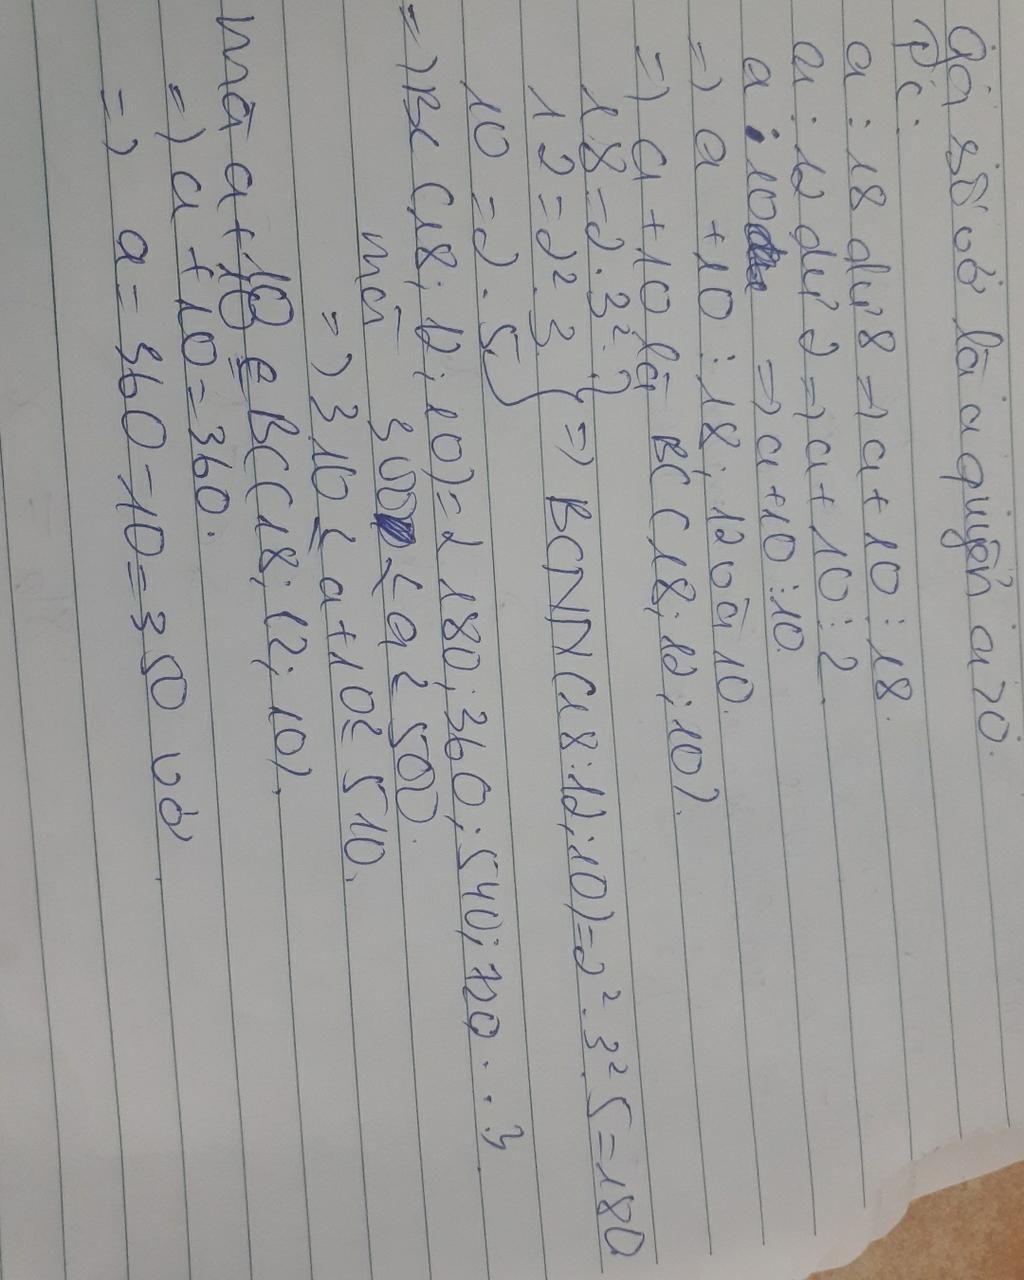 Gọi số vở là a quyển a>0.
Đ/c:
a : 18 dư 8 => a + 10 ⋮ 18.
a : 12 dư 2 => a + 10 ⋮ 2
a ⋮ 10 => a + 10 ⋮ 10.
=> a + 10 ⋮ 18; 12 và 10.
=> a + 10 là BC (18; 12; 10).
18 = 2 . 3².
12 = 2² . 3 } => BCNN (18; 12; 10) = 2² . 3² 5 = 180
10 = 2 . 5
=> BC (18; 12; 10) = { 180; 360; 540; 720 . . }
mà 300 ≤ a ≤ 500.
=> 310 ≤ a + 10 ≤ 510.
mà a + 10 ∈ BC (18; 12; 10).
=> a + 10 = 360.
=> a = 360 - 10 = 350 vở.